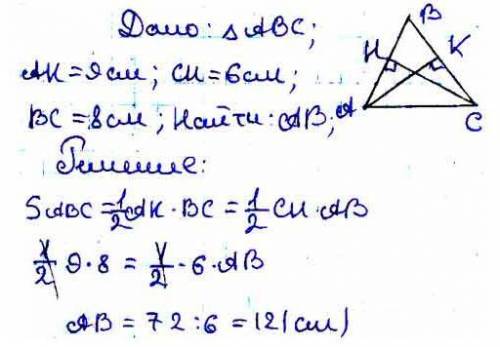 Дано: △ABC;
AK = 9 см; CH = 6 см;
BC = 8 см; Найти: AB;
Решение:
SABC = 1/2 AK · BC = 1/2 CH · AB
1/2 9 · 8 = 1/2 · 6 · AB
AB = 72 : 6 = 12 (см)
B
H
K
A
C